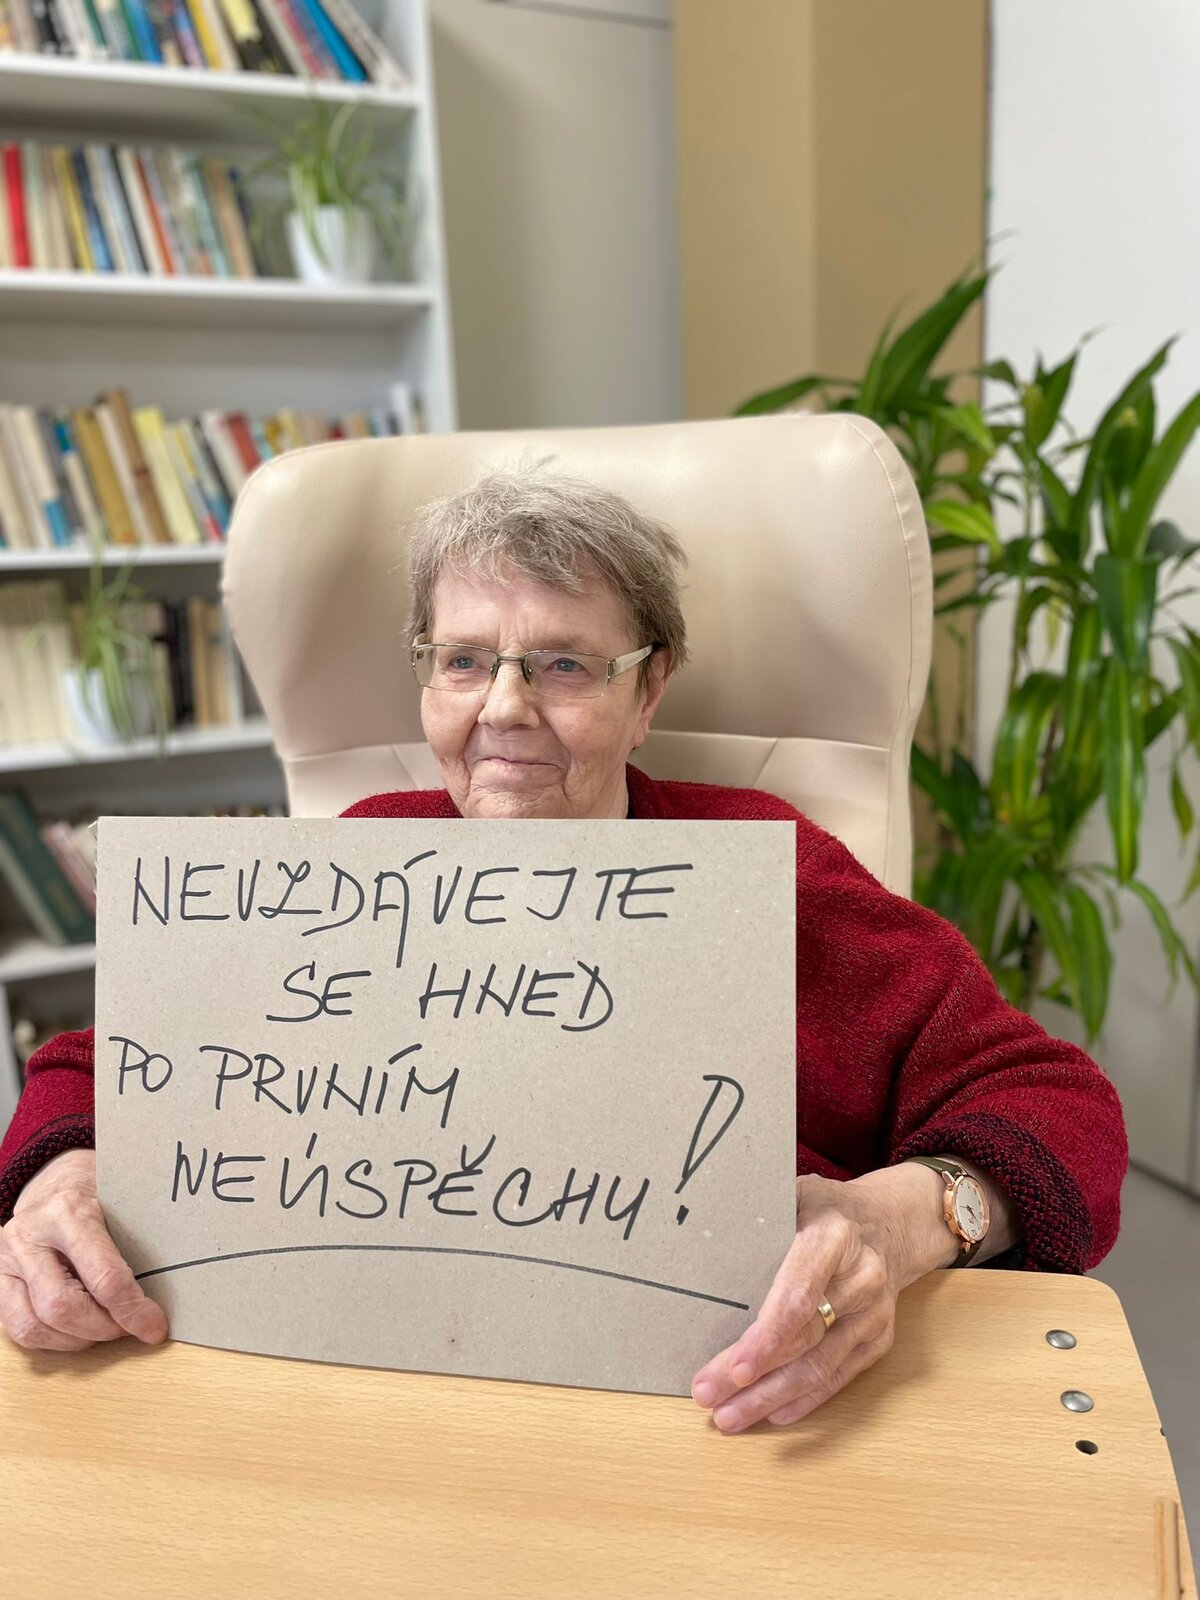 NEVZDÁVEJTE
SE HNED
PO PRVNÍM
NEÚSPĚCHU!